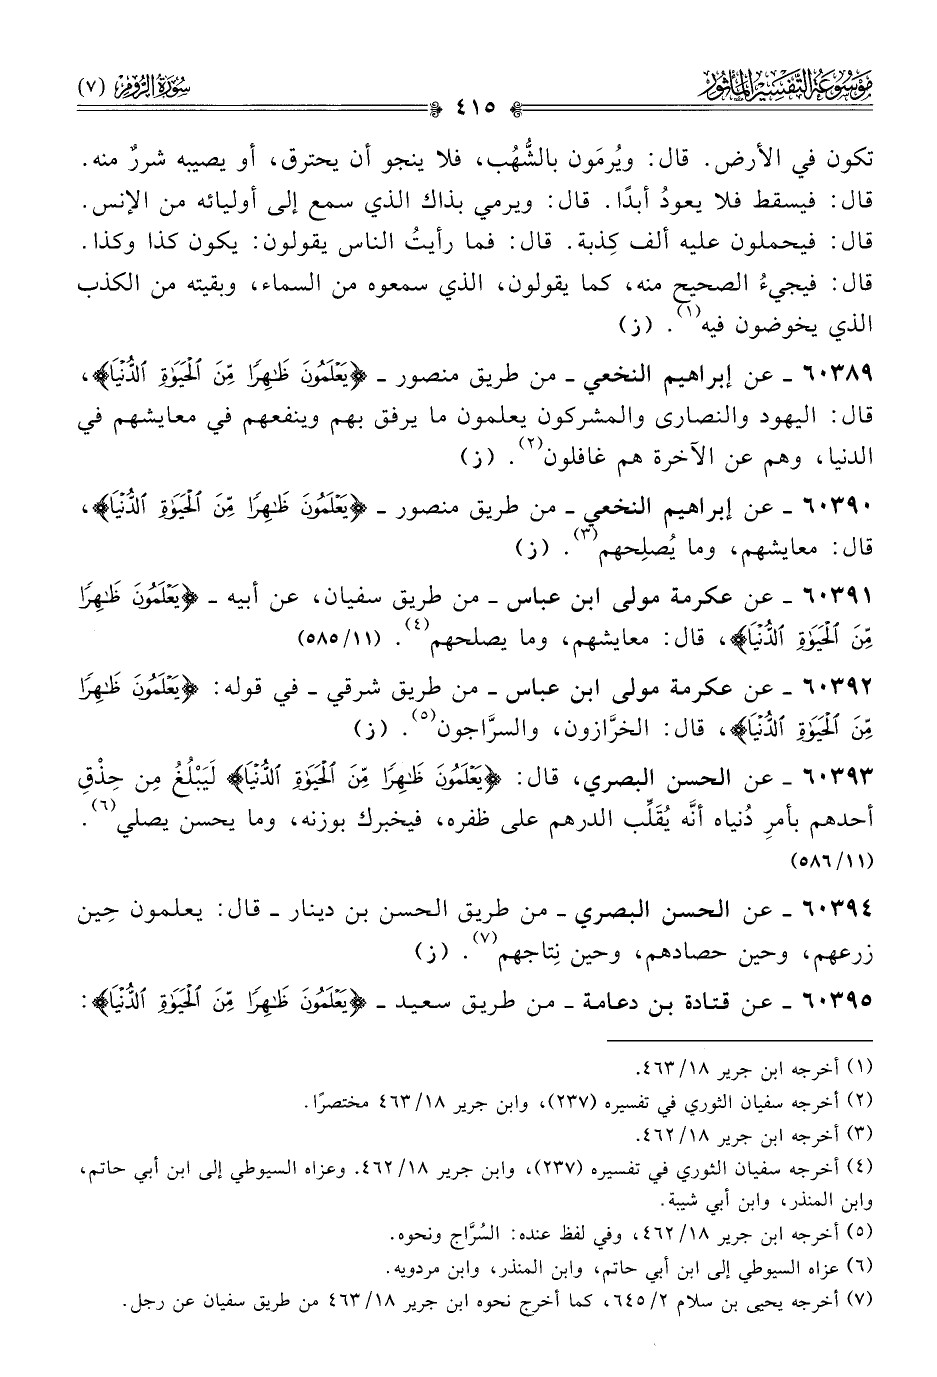 موسوعة التفسير المأثور
سورة الروم (٧)
٤١٥
تكون في الأرض. قال: ويُرمَون بالشُّهُب، فلا ينجو أن يحترق، أو يصيبه شررٌ منه.
قال: فيسقط فلا يعودُ أبدًا. قال: ويرمي بذاك الذي سمع إلى أوليائه من الإنس.
قال: فيحملون عليه ألف كِذبة. قال: فما رأيتُ الناس يقولون: يكون كذا وكذا.
قال: فيجيءُ الصحيح منه، كما يقولون، الذي سمعوه من السماء، وبقيته من الكذب
الذي يخوضون فيه(١). (ز)
٦٠٣٨٩ ـ عن إبراهيم النخعي ـ من طريق منصور ـ ﴿يَعْلَمُونَ ظَٰهِرًا مِّنَ ٱلْحَيَوٰةِ ٱلدُّنْيَا﴾،
قال: اليهود والنصارى والمشركون يعلمون ما يرفق بهم وينفعهم في معايشهم في
الدنيا، وهم عن الآخرة هم غافلون(٢). (ز)
٦٠٣٩٠ ـ عن إبراهيم النخعي ـ من طريق منصور ـ ﴿يَعْلَمُونَ ظَٰهِرًا مِّنَ ٱلْحَيَوٰةِ ٱلدُّنْيَا﴾،
قال: معايشهم، وما يُصلِحهم(٣). (ز)
٦٠٣٩١ ـ عن عكرمة مولى ابن عباس ـ من طريق سفيان، عن أبيه ـ ﴿يَعْلَمُونَ ظَٰهِرًا
مِّنَ ٱلْحَيَوٰةِ ٱلدُّنْيَا﴾، قال: معايشهم، وما يصلحهم(٤). (٥٨٥/١١)
٦٠٣٩٢ ـ عن عكرمة مولى ابن عباس ـ من طريق شرقي ـ في قوله: ﴿يَعْلَمُونَ ظَٰهِرًا
مِّنَ ٱلْحَيَوٰةِ ٱلدُّنْيَا﴾، قال: الخرَّازون، والسرَّاجون(٥). (ز)
٦٠٣٩٣ ـ عن الحسن البصري، قال: ﴿يَعْلَمُونَ ظَٰهِرًا مِّنَ ٱلْحَيَوٰةِ ٱلدُّنْيَا﴾ لَيَبْلُغُ مِن حِذْقِ
أحدهم بأمرِ دُنياه أنَّه يُقَلِّب الدرهم على ظفره، فيخبرك بوزنه، وما يحسن يصلي(٦).
(٥٨٦/١١)
٦٠٣٩٤ ـ عن الحسن البصري ـ من طريق الحسن بن دينار ـ قال: يعلمون حِين
زرعهم، وحين حصادهم، وحين نِتاجهم(٧). (ز)
٦٠٣٩٥ ـ عن قتادة بن دعامة ـ من طريق سعيد ـ ﴿يَعْلَمُونَ ظَٰهِرًا مِّنَ ٱلْحَيَوٰةِ ٱلدُّنْيَا﴾:
(١) أخرجه ابن جرير ٤٦٣/١٨.
(٢) أخرجه سفيان الثوري في تفسيره (٢٣٧)، وابن جرير ٤٦٣/١٨ مختصرًا.
(٣) أخرجه ابن جرير ٤٦٢/١٨.
(٤) أخرجه سفيان الثوري في تفسيره (٢٣٧)، وابن جرير ٤٦٢/١٨. وعزاه السيوطي إلى ابن أبي حاتم،
وابن المنذر، وابن أبي شيبة.
(٥) أخرجه ابن جرير ٤٦٢/١٨، وفي لفظ عنده: السُرَّاج ونحوه.
(٦) عزاه السيوطي إلى ابن أبي حاتم، وابن المنذر، وابن مردويه.
(٧) أخرجه يحيى بن سلام ٦٤٥/٢، كما أخرج نحوه ابن جرير ٤٦٣/١٨ من طريق سفيان عن رجل.